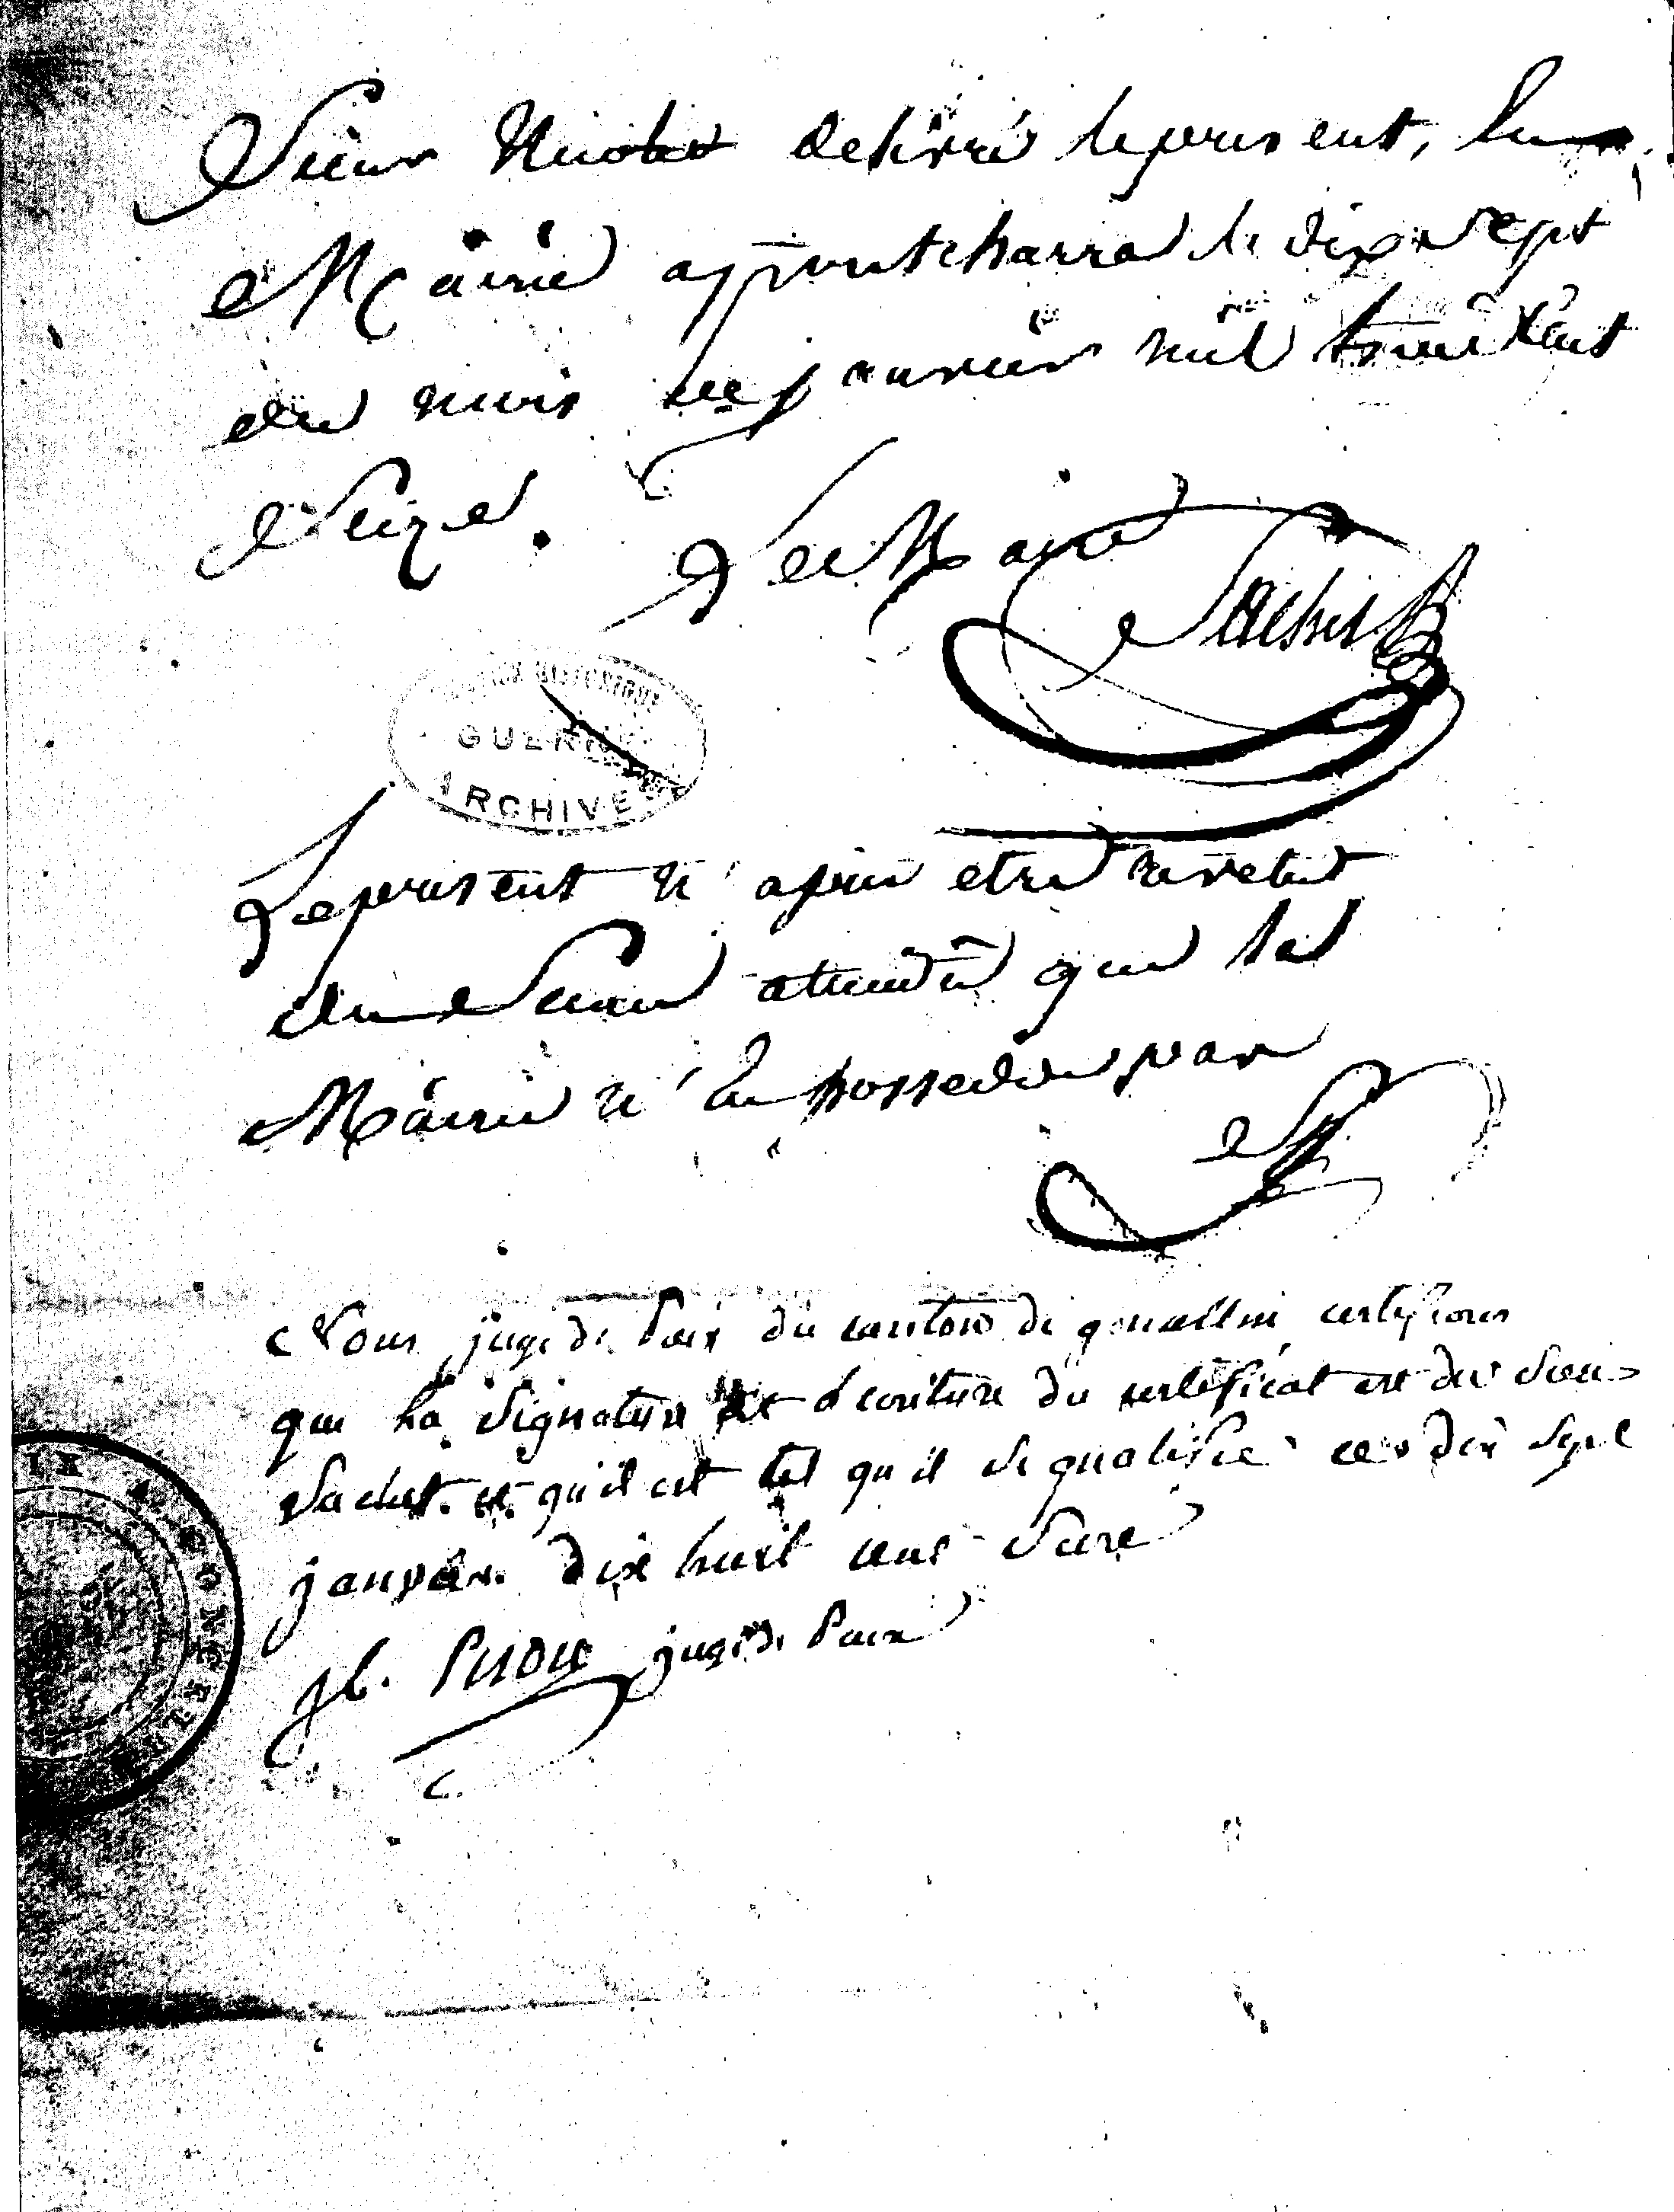 Sieur Nicolas delivré le present, En
Mairie a pontcharra le dix sept
du mois de janvier mil huit Cent
Seize.
Le Maire
Sachet
GUERRE
ARCHIVES
Le present n'a peu etre revetu
du Sceau attendu que la
Mairie n'En possede pas
S
Nous juge de Paix du canton de goncelin certifions
que la signature et l'ecriture du certificat est du sieur
Sachet et qu'il est tel qu'il se qualifie ce dix sept
janvier dix huit cent seize
juge de Paix